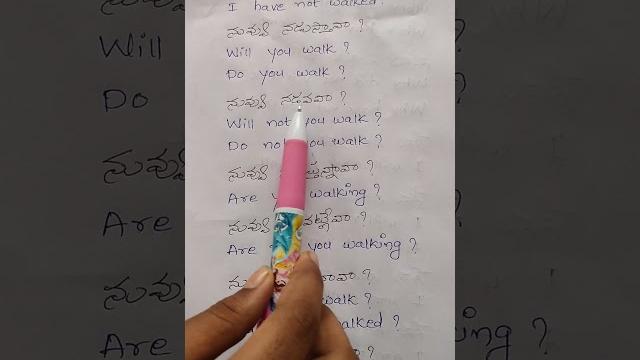 I have not walked.
నువ్వు నడుస్తావా ?
Will you walk ?
Do you walk ?
నువ్వు నడవవా ?
Will not you walk ?
Do not you walk ?
నువ్వు
Are walking ?
నువ్వు
Are you walking ?
walk ?
walked ?